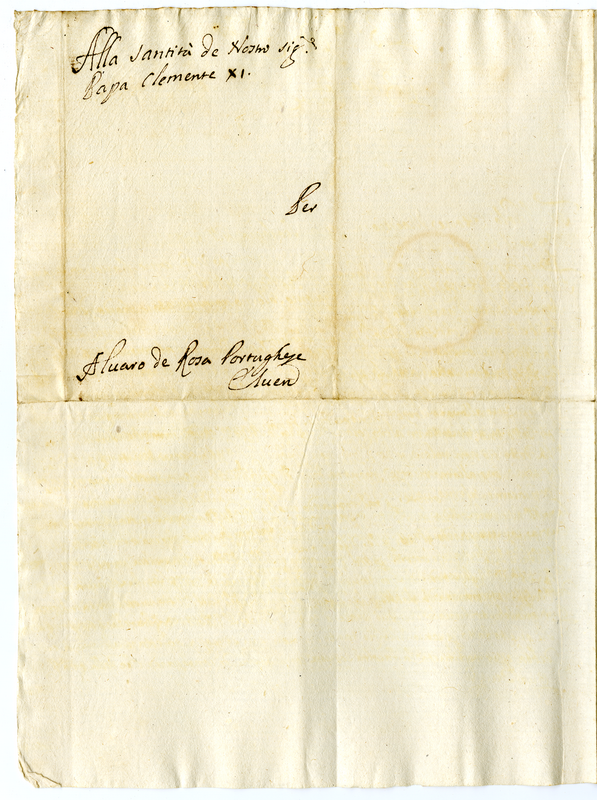 Alla Santità de Nostro Sig.re
Papa Clemente XI.
Per
Aluaro de Rosa Portughese